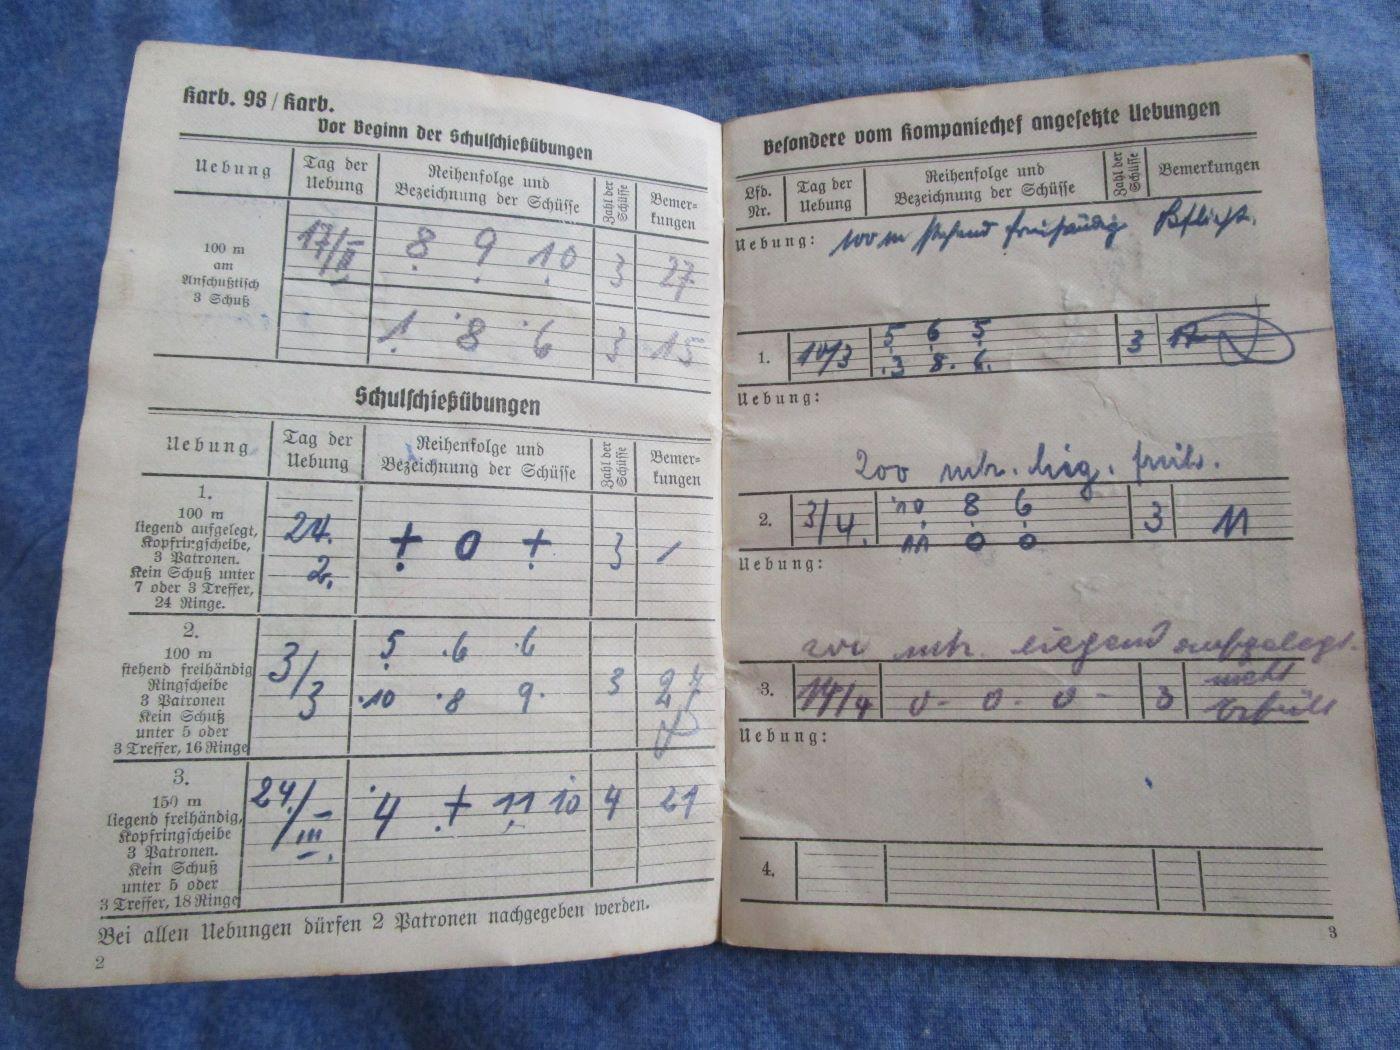 Karb. 98 / Karb.
Vor Beginn der Schulschießübungen
Uebung
Tag der
Uebung
Reihenfolge und
Bezeichnung der Schüsse
Zahl der
Schüsse
Bemer-
kungen
100 m
am
Anschußtisch
3 Schuß
17/III
8 9 10
3
27
1 8 6
3
15
Schulschießübungen
Uebung
Tag der
Uebung
Reihenfolge und
Bezeichnung der Schüsse
Zahl der
Schüsse
Bemer-
kungen
1.
100 m
liegend aufgelegt,
Kopfringscheibe,
3 Patronen.
Kein Schuß unter
7 oder 3 Treffer,
24 Ringe.
24.
2.
+ 0 +
3
/
2.
100 m
stehend freihändig
Ringscheibe
3 Patronen
Kein Schuß
unter 5 oder
3 Treffer, 16 Ringe
3/3
5 6 6
10 8 9
3
27
3.
150 m
liegend freihändig,
Kopfringscheibe
3 Patronen.
Kein Schuß
unter 5 oder
3 Treffer, 18 Ringe
24/III.
4 + 11 10
4
21
Bei allen Uebungen dürfen 2 Patronen nachgegeben werden.
2
Besondere vom Kompaniechef angesetzte Uebungen
Lfd.
Nr.
Tag der
Uebung
Reihenfolge und
Bezeichnung der Schüsse
Zahl der
Schüsse
Bemerkungen
Uebung: 100 m stehend freihändig
1.
10/3
5 6 5
3 8 6
3
17
Uebung:
200 mtr. lieg. freih.
2.
3/4.
10 8 6
11 0 0
3
11
Uebung:
200 mtr. liegend aufgelegt.
3.
17/4
0 - 0 - 0 -
3
nicht
Erfüllt
Uebung:
4.
3